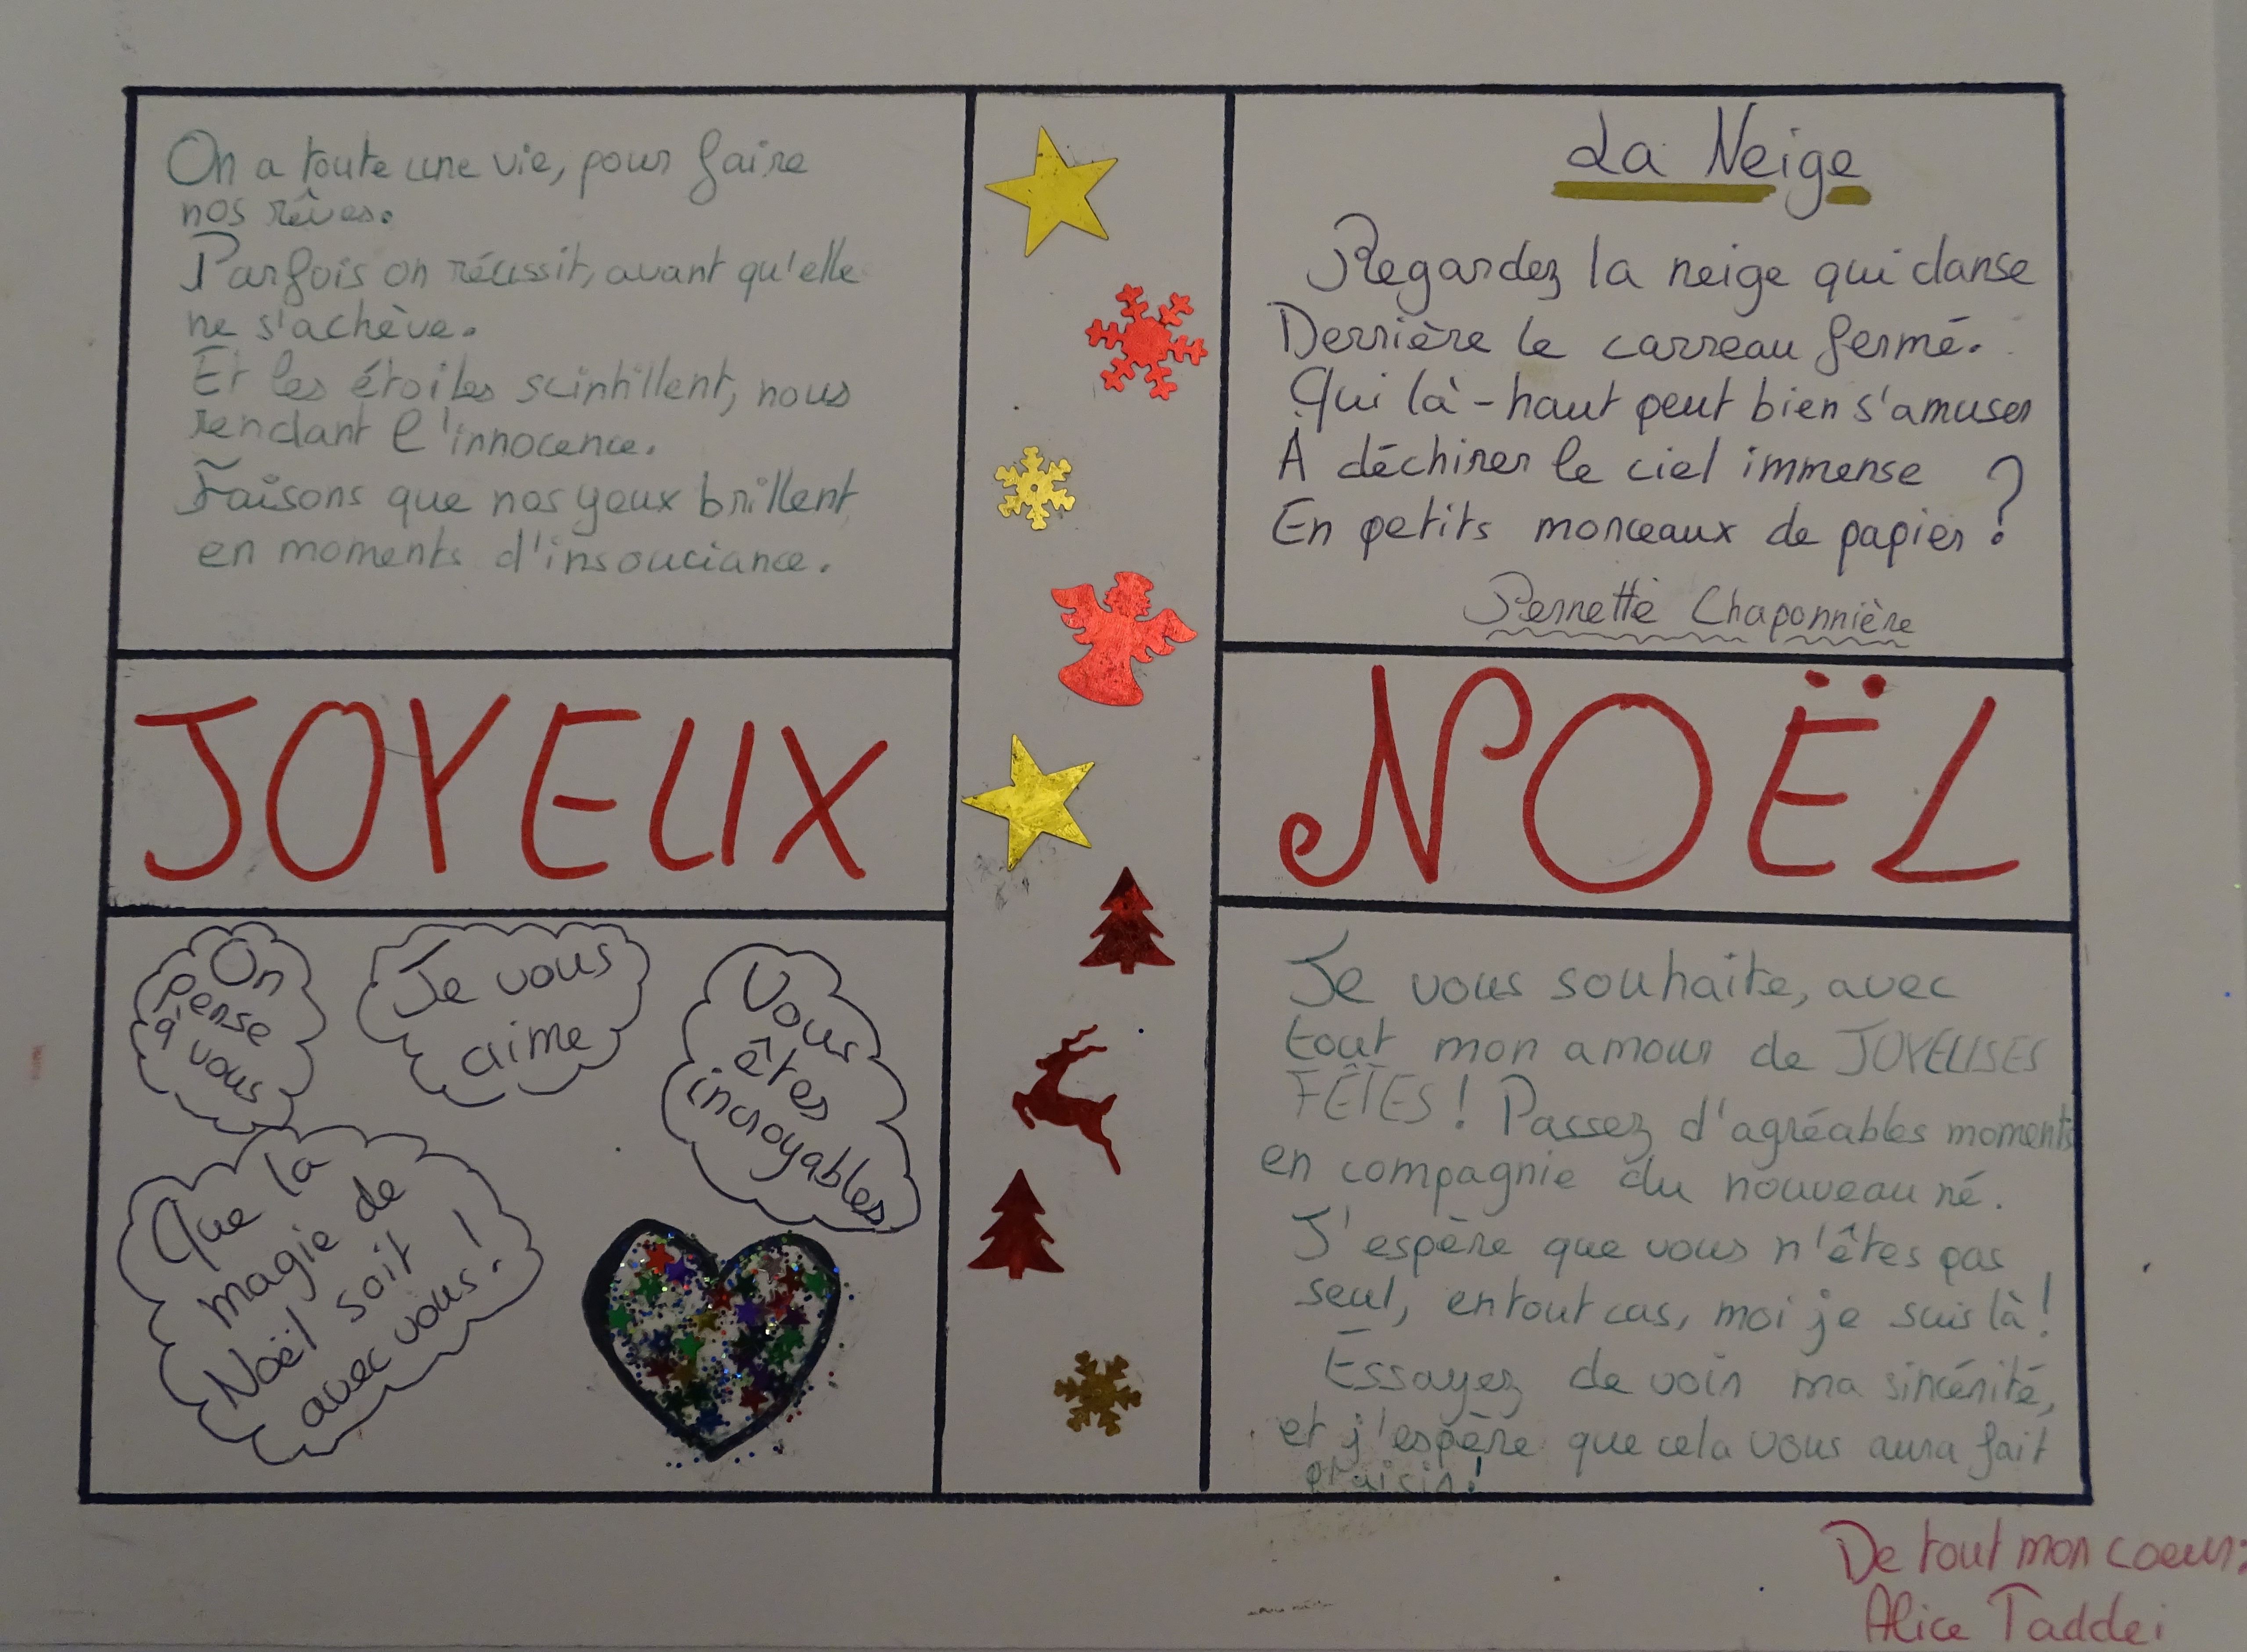 On a toute une vie, pour faire
nos rêves.
Parfois on réussit, avant qu'elle
ne s'achève.
Et les étoiles scintillent, nous
rendant l'innocence.
Faisons que nos yeux brillent
en moments d'insouciance.
La Neige
Regardez la neige qui danse
Derrière le carreau fermé.
Qui là-haut peut bien s'amuser
À déchirer le ciel immense
En petits morceaux de papier ?
Pernette Chaponnière
JOYEUX
NOËL
On
pense
à vous
Je vous
aime
Vous
êtes
incroyables
Que la
magie de
Noël soit
avec vous !
Je vous souhaite, avec
tout mon amour de JOYEUSES
FÊTES ! Passez d'agréables moments
en compagnie du nouveau né.
J'espère que vous n'êtes pas
seul, en tout cas, moi je suis là !
Essayez de voir ma sincérité,
et j'espère que cela vous aura fait
plaisir !
De tout mon coeur :
Alice Taddei